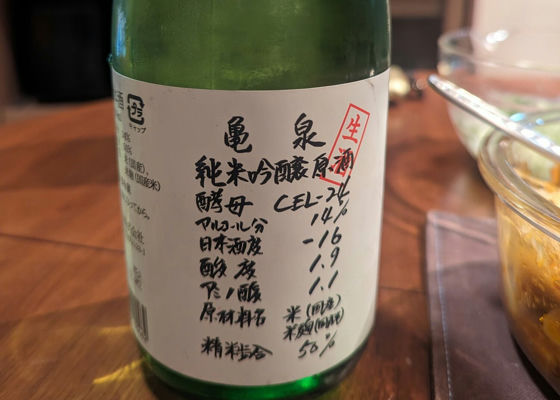 亀泉
生酒
純米吟醸原酒
酵母 CEL-24
アルコール分 14%
日本酒度 -16
酸度 1.9
アミノ酸 1.1
原材料名 米(国産)
米麹(国産米)
精米歩合 50%
プラ
キャップ